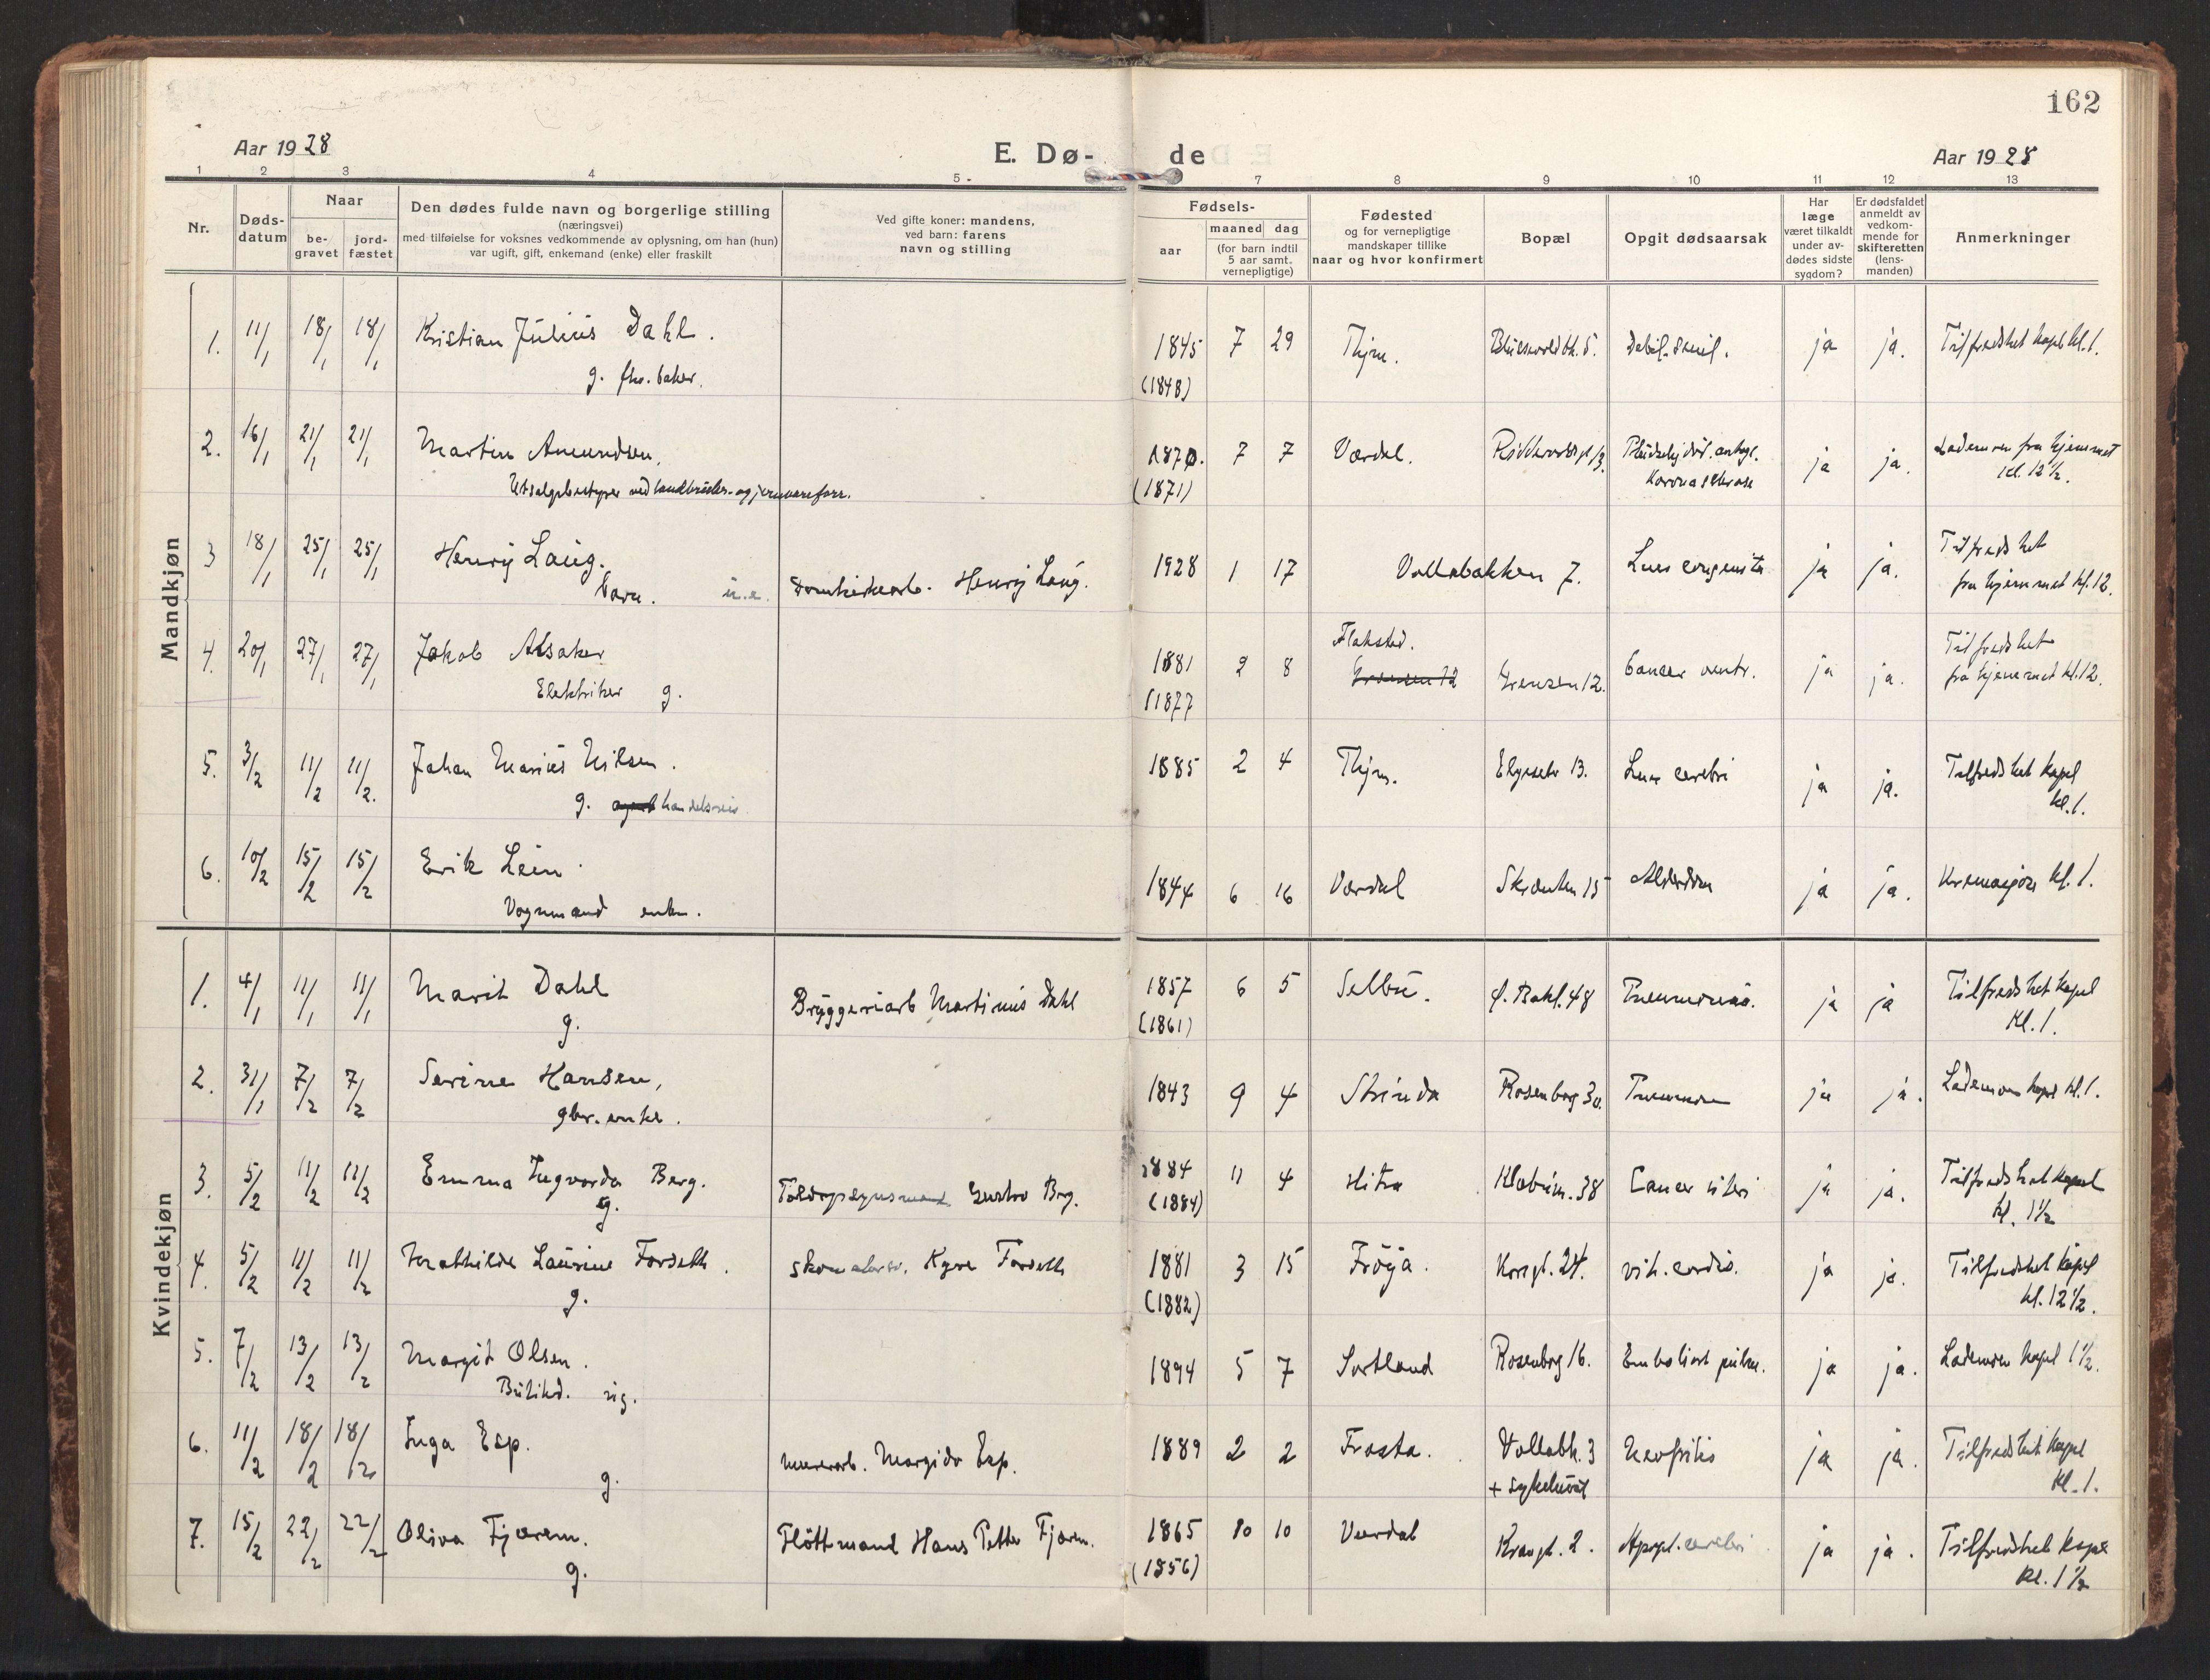 162
Aar 1928
E. Dø-
de
Aar 1928
1 2 3 4 5 7 8 9 10 11 12 13
Nr.
Døds-
datum
Naar
be-
gravet
jord-
fæstet
Den dødes fulde navn og borgerlige stilling
(næringsvei)
med tilføielse for voksnes vedkommende av oplysning, om han (hun)
var ugift, gift, enkemand (enke) eller fraskilt
Ved gifte koner: mandens,
ved barn: farens
navn og stilling
Fødsels-
aar
maaned dag
(for barn indtil
5 aar samt
vernepligtige)
Fødested
og for vernepligtige
mandskaper tillike
naar og hvor konfirmert
Bopæl
Opgit dødsaarsak
Har
læge
været tilkaldt
under av-
dødes sidste
sygdom?
Er dødsfaldet
anmeldt av
vedkom-
mende for
skifteretten
(lens-
manden)
Anmerkninger
Mandkjøn
1. 11/1 18/1 18/1 Kristian Julius Dahl. 1845 7 29 Thjm. 5. ja ja. Tilfredshet kapel kl. 1.
g. fhv. baker. (1848)
2. 16/1 21/1 21/1 Martin Amundsen. 1870. 7 7 Værdal. ja ja. Lademoen fra hjemmet
(1871) kl. 12½.
3 18/1 25/1 25/1 Henry Laug. Henry Laug. 1928 1 17 Vollabakken 7. Lues congenita ja ja. Tilfredshet
barn. u.e. fra hjemmet kl. 12.
4. 20/1 27/1 27/1 Jakob Alsaker 1881 2 8 Flakstad. Grensen 12. Cancer ventr. ja ja. Tilfredshet
Elektriker g. (1877 Grensen 12 fra hjemmet kl. 12.
5. 3/2 11/2 11/2. Johan Marius Nilsen. 1885 2 4 Thjm. Elgeseter 13. Lues cerebri ja ja. Tilfredshet kapel
g. agent handelsreis kl. 1.
6. 10/2 15/2 15/2 Erik Lein. 1844 6 16 Værdal 15 ja ja. kl. 1.
Vognmand enkem.
Kvindekjøn
1. 4/1 11/1 11/1 Marit Dahl Bryggeriarb Martinus Dahl 1857 6 5 Selbu. Ø. Bakl. 48 Pneumonia. ja ja Tilfredshet kapel
g. (1861) Kl. 1.
2. 31/1 7/2 7/2 Serine Hansen, 1843 9 4 Strinda Rosenborg 30. Pneumoni ja ja. Lademoen kapel kl. 1.
gbr. enke.
3. 5/2 11/2 11/2 Emma Ingvarda Berg. Gustav Berg. 1884 11 4 Hitra 38 Cancer uteri ja ja. Tilfredshet kapel
g. (1884) kl. 1½
4. 5/2 11/2 11/2 Mathilde Laurine Forseth. Forseth 1881 3 15 Frøya. Kongt. 24. vit. cordis. ja ja. Tilfredshet kapel
g. (1882) kl. 12½.
5. 7/2 13/2 13/2 Margit Olsen. 1894 5 7 Sortland Rosenborg 16. Emboliart pulm. ja ja. Lademoen kapel 1½.
Butikd. ug.
6. 11/2 18/2 18/2 Inga Esp. Murerarb. Margido Esp. 1889 2 2 Frosta. Vollabk. 3 Nevfritis ja ja. Tilfredshet kapel
g. + sykehuset Kl. 1.
7. 15/2 22/2 22/2 Oliva Fjærem. Fløttmand Hans Petter Fjærem. 1865 10 10 Værdal 2. Apopl. cerebri ja ja. Tilfredshet kapel
g. (1856) kl. 1½